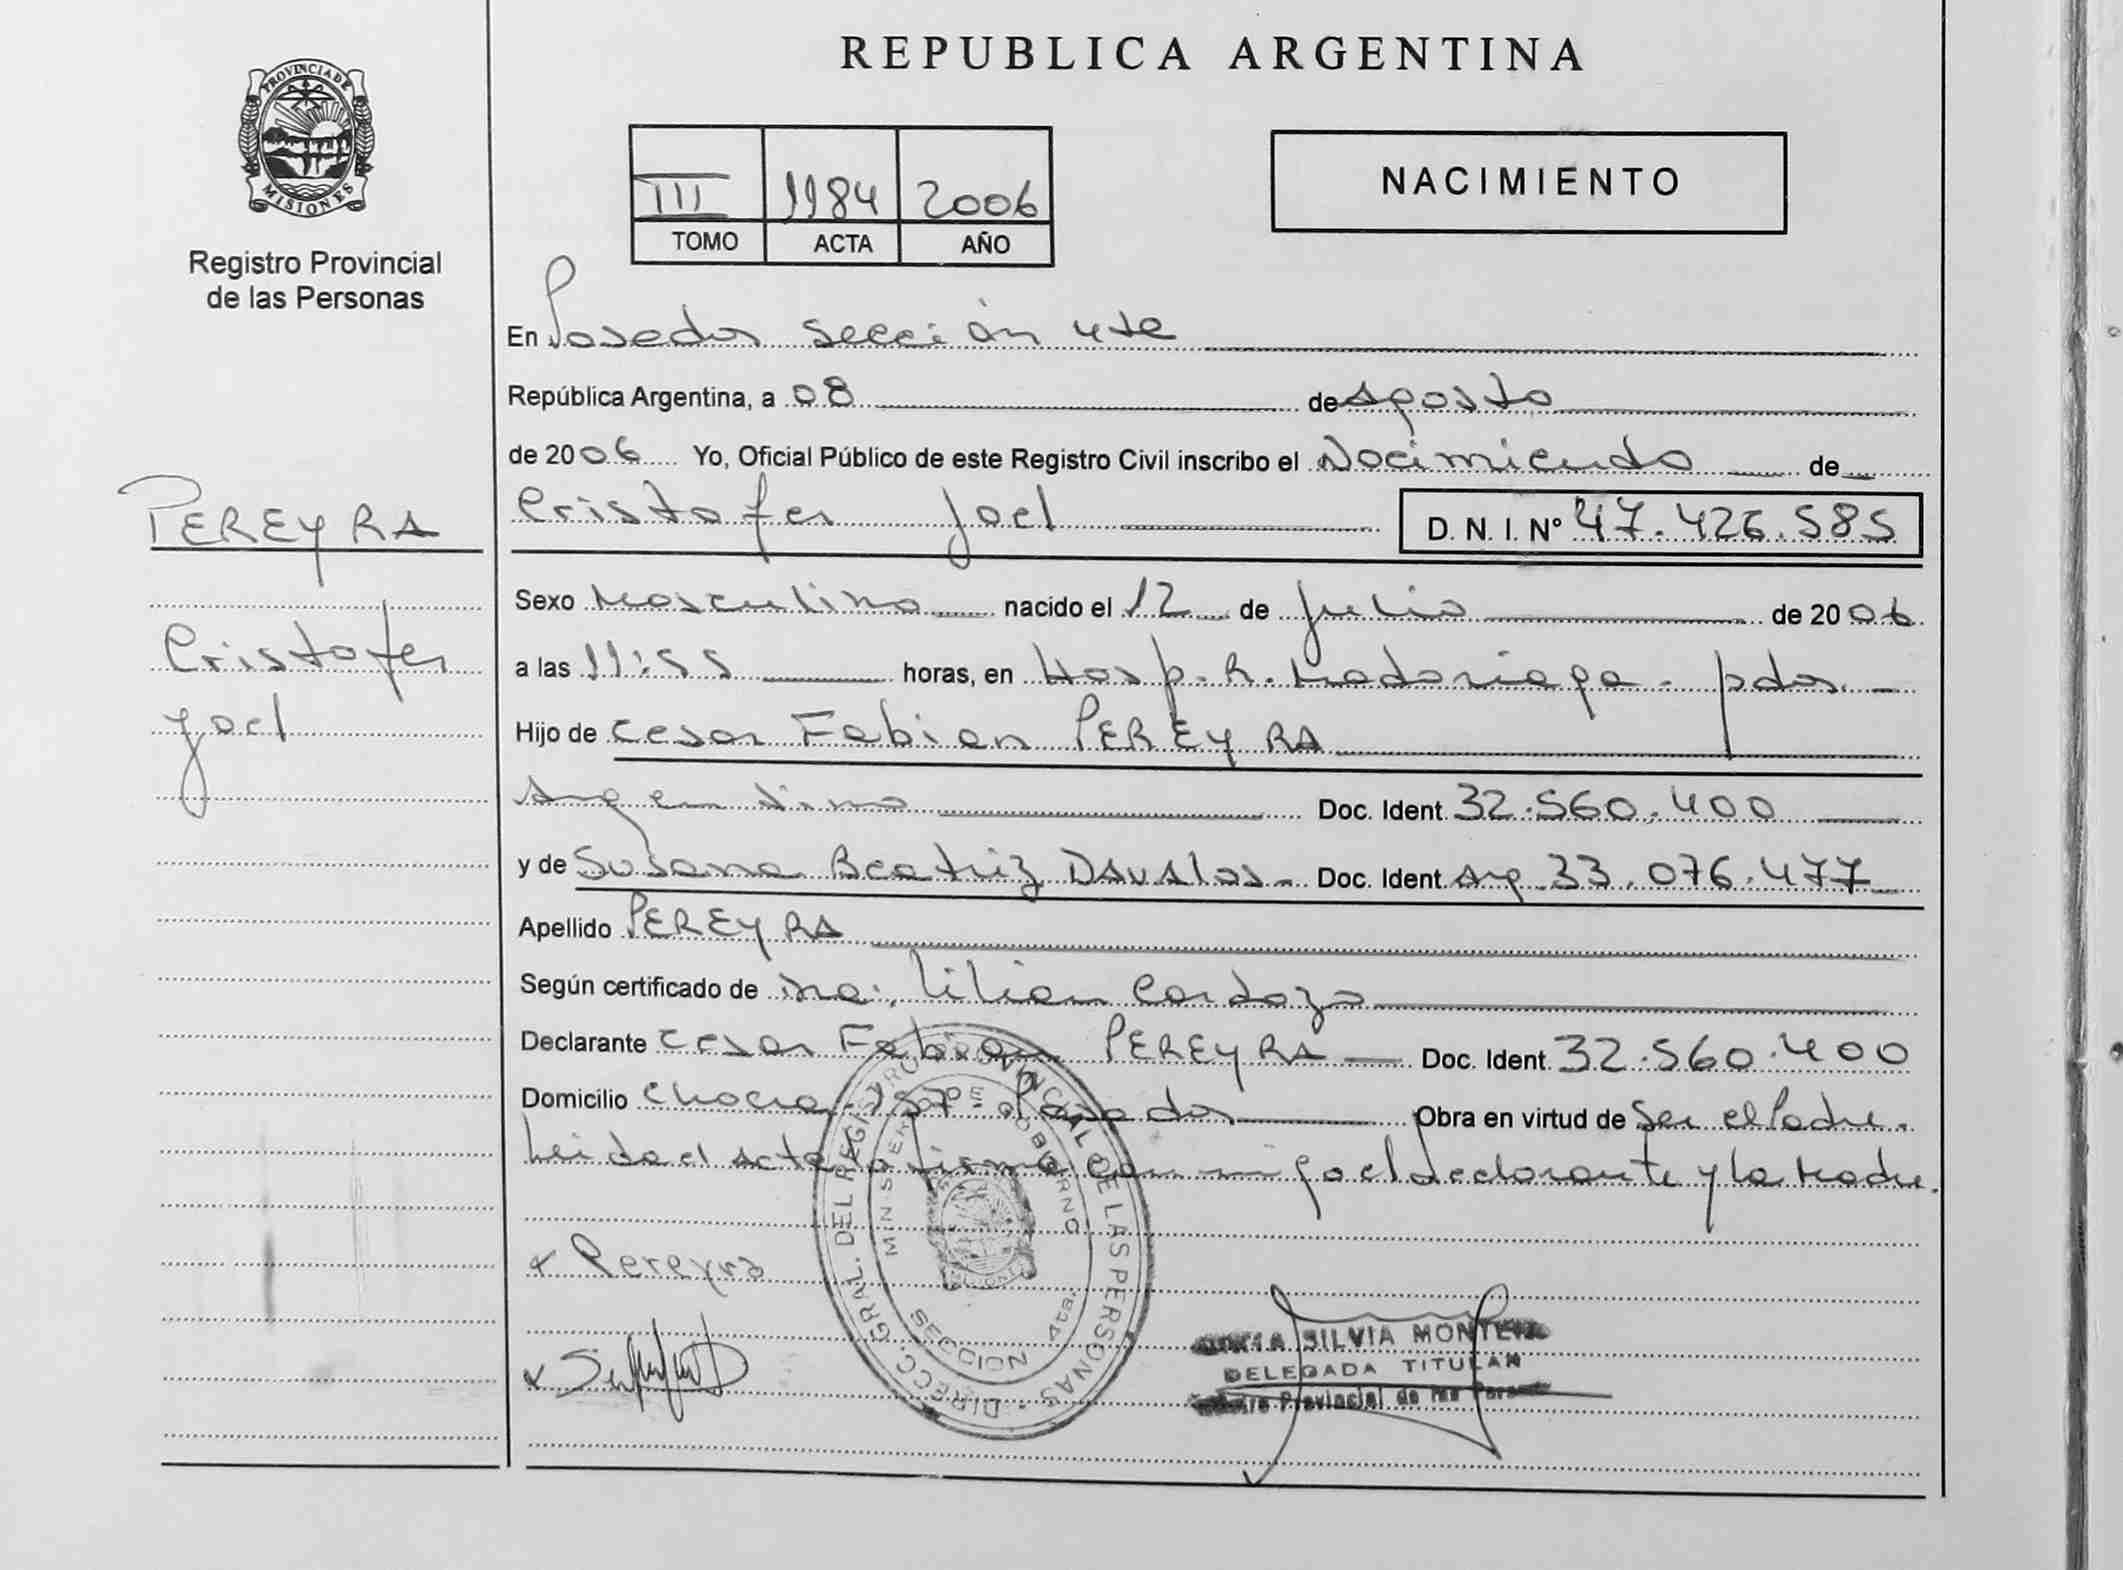 REPUBLICA ARGENTINA
PROVINCIA DE
MISIONES
Registro Provincial
de las Personas
III 1184 2006
TOMO ACTA AÑO
NACIMIENTO
En Posadas sección 4ta
República Argentina, a 08 de Agosto
de 2006 Yo, Oficial Público de este Registro Civil inscribo el Nacimiento de
PEREYRA
Cristofer Joel D. N. I. Nº 47.426.585
Sexo Masculino nacido el 12 de Julio de 2006
Cristofer
a las 11:55 horas, en Hosp. R. Madariaga - pdas.
Joel
Hijo de Cesar Fabian PEREYRA
Argentino Doc. Ident. 32.560.400
y de Susana Beatriz DAVALOS - Doc. Ident. Arg. 33.076.477
Apellido PEREYRA
Según certificado de Lilian Cardozo
Declarante Cesar Fabian PEREYRA Doc. Ident. 32.560.400
Domicilio 157 - Posadas Obra en virtud de Ser el Padre.
Leida el acta la firma conmigo el declarante y la Madre.
x Pereyra
DIRECC. GRAL. DEL REGISTRO PROVINCIAL DE LAS PERSONAS
MINISTERIO DE GOBIERNO
MISIONES
SECCION 4ta.
SILVIA
DELEGADA TITULAR
Provincial de las